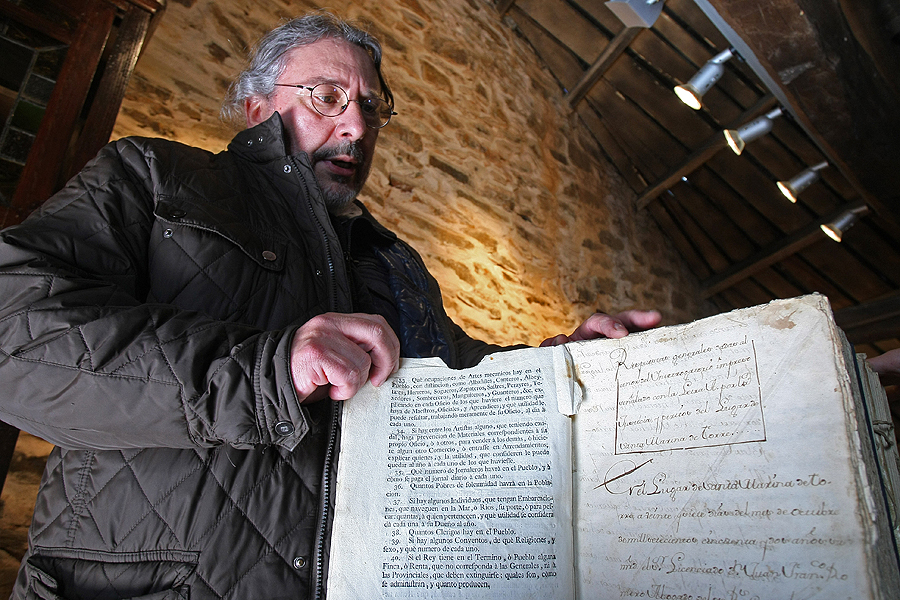 33. Qué ocupaciones de Artes mecanicos hay en el
Pueblo, con distincion, como Albañiles, Canteros, Albey-
tares, Herreros, Sogueros, Zapateros, Sastres, Perayres, Te-
xedores, Sombrereros, Manguiteros, y Guanteros, &c. ex-
plicando en cada Oficio de los que huviere el numero que
haya de Maestros, Oficiales, y Aprendices; y qué utilidad le
puede resultar, trabajando meramente de su Oficio, al dia à
cada uno.
34. Si hay entre los Artistas alguno, que teniendo cau-
dal, haga prevencion de Materiales correspondientes à su
propio Oficio, ò à otros, para vender à los demàs, ò hicie-
re algun otro Comercio, ò entrasse en Arrendamientos,
explicar quienes; y la utilidad, que consideren le puede
quedar al año à cada uno de los que huviesse.
35. Qué numero de Jornaleros havrà en el Pueblo, y à
cómo se paga el jornal diario à cada uno.
36. Quantos Pobres de solemnidad havrà en la Pobla-
cion.
37. Si hay algunos Individuos, que tengan Embarcacio-
nes, que naveguen en la Mar, ò Rios, su porte, ò para pes-
car: quantas, à quien pertenecen, y qué utilidad se considera
dà cada una à su Dueño al año.
38. Quantos Clerigos hay en el Pueblo.
39. Si hay algunos Conventos, de qué Religiones, y
sexo, y qué numero de cada uno.
40. Si el Rey tiene en el Termino, ò Pueblo alguna
Finca, ò Renta, que no corresponda à las Generales, ni à
las Provinciales, que deben extinguirse: quales son, cómo
se administran, y quanto producen.
Respuestas generales dadas al
thenor del Ynterrogatorio impreso
arreglado con la Real
y precio del Lugar de
Santa Marina de Torre
En el Lugar de Santa Marina de to-
rre a dias del mes de octubre
de mill setecientos cinquenta y dos años
el Licenciado Dn Juan